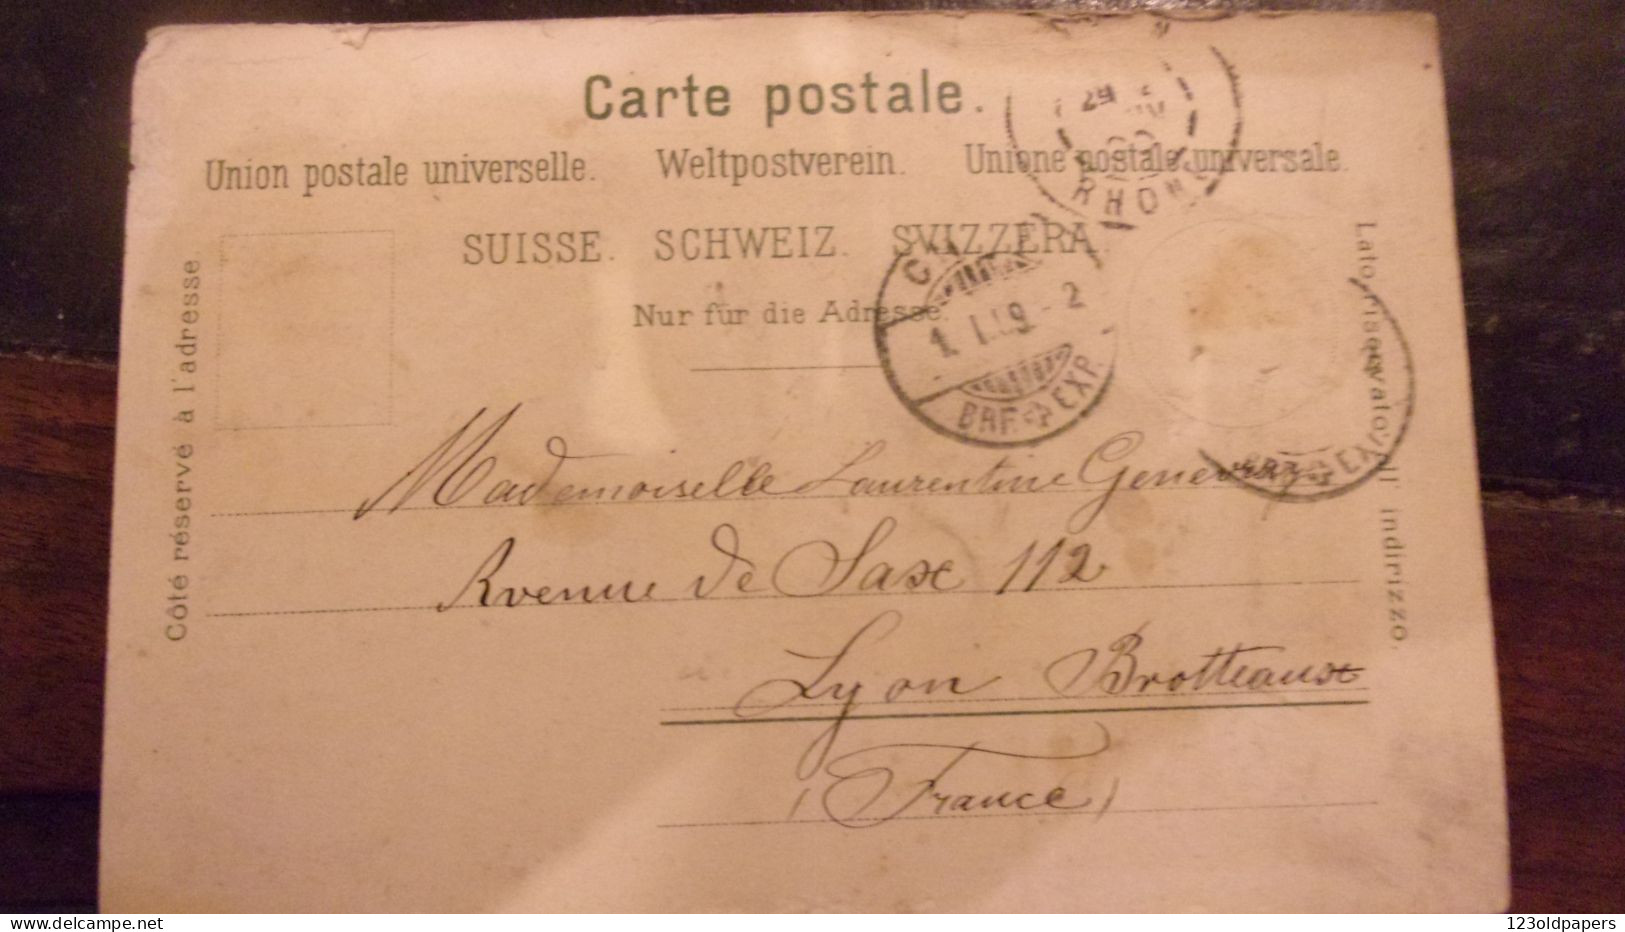 Carte postale.
Union postale universelle. Weltpostverein. Unione postale universale.
SUISSE. SCHWEIZ. SVIZZERA.
Nur für die Adresse.
Côté réservé à l'adresse.
Lato riservato all indirizzo.
RHONE
BRF. EXP.
EXP
Mademoiselle Laurentine
Avenue de Saxe 112
Lyon Brotteaux
(France)
123oldpapers